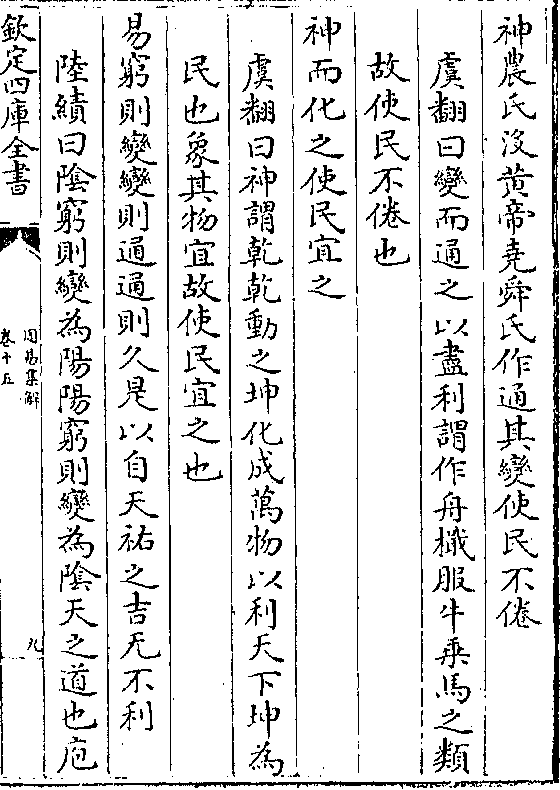 神農氏沒黃帝堯舜氏作通其變使民不倦
虞翻曰變而通之以盡利謂作舟檝服牛乘馬之類
故使民不倦也
神而化之使民宜之
虞翻曰神謂乾乾動之坤化成萬物以利天下坤為
民也象其物宜故使民宜之也
易窮則變變則通通則久是以自天祐之吉无不利
陸績曰陰窮則變為陽陽窮則變為陰天之道也庖
欽定四庫全書
周易集解
卷十五
九